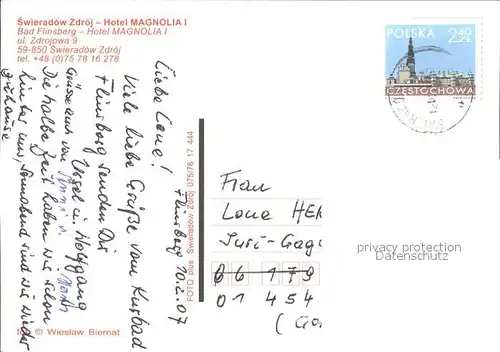 Świeradów Zdrój – Hotel MAGNOLIA I
Bad Flinsberg – Hotel MAGNOLIA I
ul. Zdrojowa 9
59-850 Świeradów Zdrój
tel. +48 (0)75 78 16 278
POLSKA 2,40 ZŁ
CZĘSTOCHOWA
Flinsberg 10.2.07
Liebe Lona!
Viele liebe Grüße vom Kurbad
Flinsberg senden Dir
Ursel u. Wolfgang
Grüsse auch von
Die halbe Zeit haben wir schon
hinter uns, Sonnabend sind wir wieder
zuhause
FOTO plus Świeradów Zdrój 075/78 17 444
Frau
Lona HE
Juri-Gag
06 179
01 454
privacy protection
Datenschutz
© Wiesław Biernat